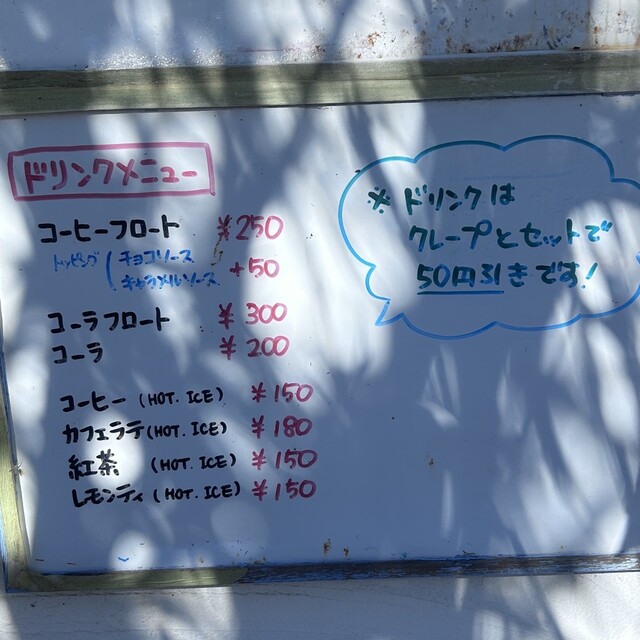 ドリンクメニュー
コーヒーフロート ¥250
トッピング ( チョコソース
キャラメルソース +50
コーラフロート ¥300
コーラ ¥200
コーヒー (HOT. ICE) ¥150
カフェラテ (HOT. ICE) ¥180
紅茶 (HOT. ICE) ¥150
レモンティ (HOT. ICE) ¥150
※ ドリンクは
クレープとセットで
50円引きです!